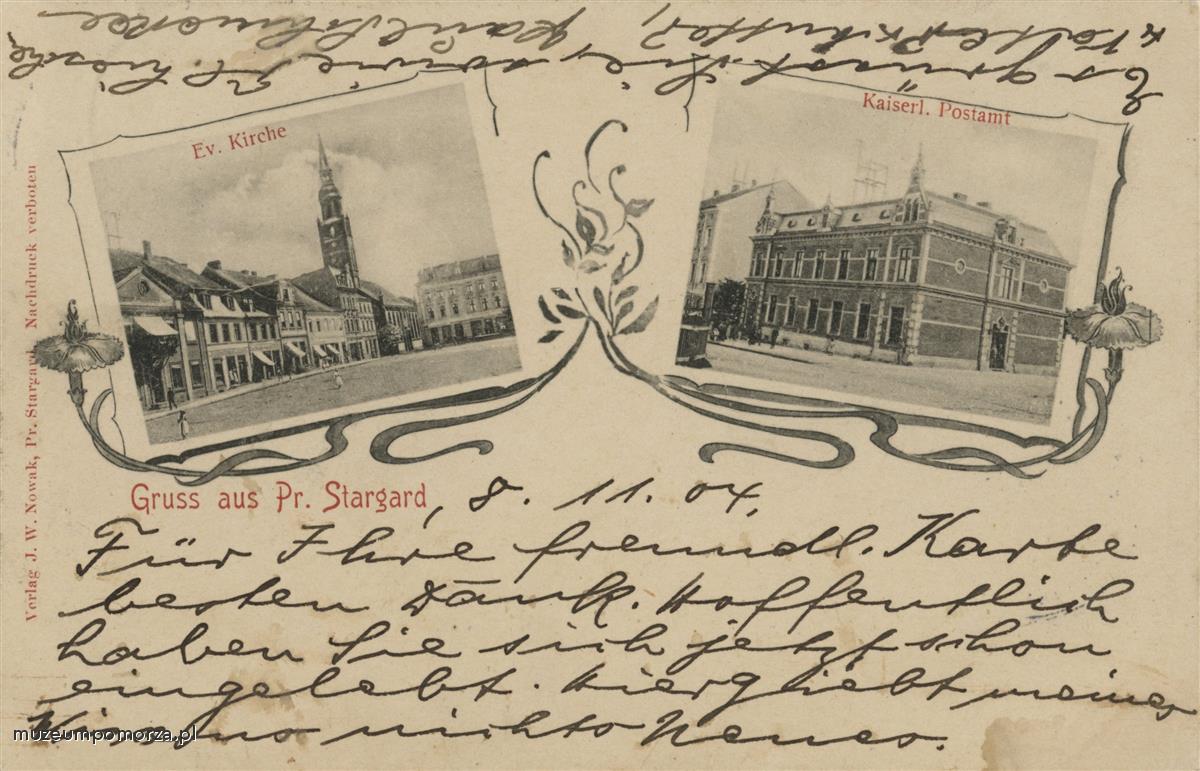 Ev. Kirche
Kaiserl. Postamt
Verlag J. W. Nowak, Pr. Stargard Nachdruck verboten
Gruss aus Pr. Stargard, 8. 11. 04.
Für Ihre freundl. Karte
besten Dank. Hoffentlich
haben Sie sich jetzt schon
eingelebt. Hier giebt meines
Wissens nichts Neues.
Es grüsst Sie, sowie
muzeumpomorza.pl